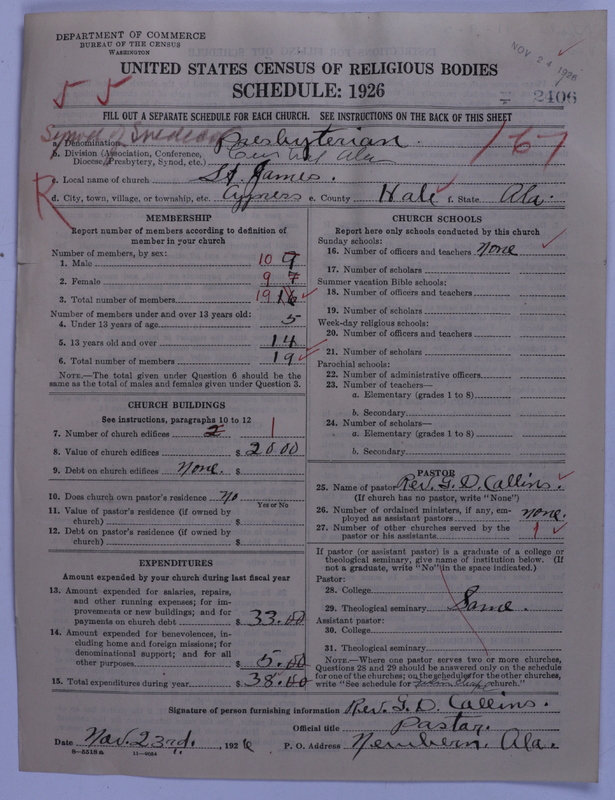 DEPARTMENT OF COMMERCE
BUREAU OF THE CENSUS
WASHINGTON
NOV 24 1926
UNITED STATES CENSUS OF RELIGIOUS BODIES
SCHEDULE: 1926
55
2406
FILL OUT A SEPARATE SCHEDULE FOR EACH CHURCH. SEE INSTRUCTIONS ON THE BACK OF THIS SHEET
Synod of
167
a. Denomination Presbyterian.
b. Division (Association, Conference, Diocese, Presbytery, Synod, etc.) Central Ala
R
c. Local name of church St. James.
d. City, town, village, or township, etc. Cypress e. County Hale f. State Ala.
MEMBERSHIP
Report number of members according to definition of
member in your church
Number of members, by sex:
1. Male 10 9
2. Female 9 7
3. Total number of members 19 16
Number of members under and over 13 years old:
4. Under 13 years of age 5
5. 13 years old and over 14
6. Total number of members 19
NOTE.—The total given under Question 6 should be the
same as the total of males and females given under Question 3.
CHURCH BUILDINGS
See instructions, paragraphs 10 to 12
7. Number of church edifices 2 1
8. Value of church edifices $ 20.00
9. Debt on church edifices None. $
10. Does church own pastor's residence No
Yes or No
11. Value of pastor's residence (if owned by
church) $
12. Debt on pastor's residence (if owned by
church) $
EXPENDITURES
Amount expended by your church during last fiscal year
13. Amount expended for salaries, repairs,
and other running expenses; for im-
provements or new buildings; and for
payments on church debt $ 33.00
14. Amount expended for benevolences, in-
cluding home and foreign missions; for
denominational support; and for all
other purposes $ 5.00
15. Total expenditures during year $ 38.00
CHURCH SCHOOLS
Report here only schools conducted by this church
Sunday schools:
16. Number of officers and teachers None
17. Number of scholars
Summer vacation Bible schools:
18. Number of officers and teachers
19. Number of scholars
Week-day religious schools:
20. Number of officers and teachers
21. Number of scholars
Parochial schools:
22. Number of administrative officers
23. Number of teachers—
a. Elementary (grades 1 to 8)
b. Secondary
24. Number of scholars—
a. Elementary (grades 1 to 8)
b. Secondary
PASTOR
25. Name of pastor Rev. G. D. Collins.
(If church has no pastor, write "None")
26. Number of ordained ministers, if any, em-
ployed as assistant pastors none.
27. Number of other churches served by the
pastor or his assistants 1
If pastor (or assistant pastor) is a graduate of a college or
theological seminary, give name of institution below. (If
not a graduate, write "No" in the space indicated.)
Pastor:
28. College
29. Theological seminary Same.
Assistant pastor:
30. College
31. Theological seminary
NOTE.—Where one pastor serves two or more churches,
Questions 28 and 29 should be answered only on the schedule
for one of the churches; on the schedules for the other churches,
write "See schedule for church."
Signature of person furnishing information Rev. G. D. Collins.
Official title Pastor.
Date Nov. 23rd, 1926 P. O. Address Newbern, Ala.
8—5518a 11—9054